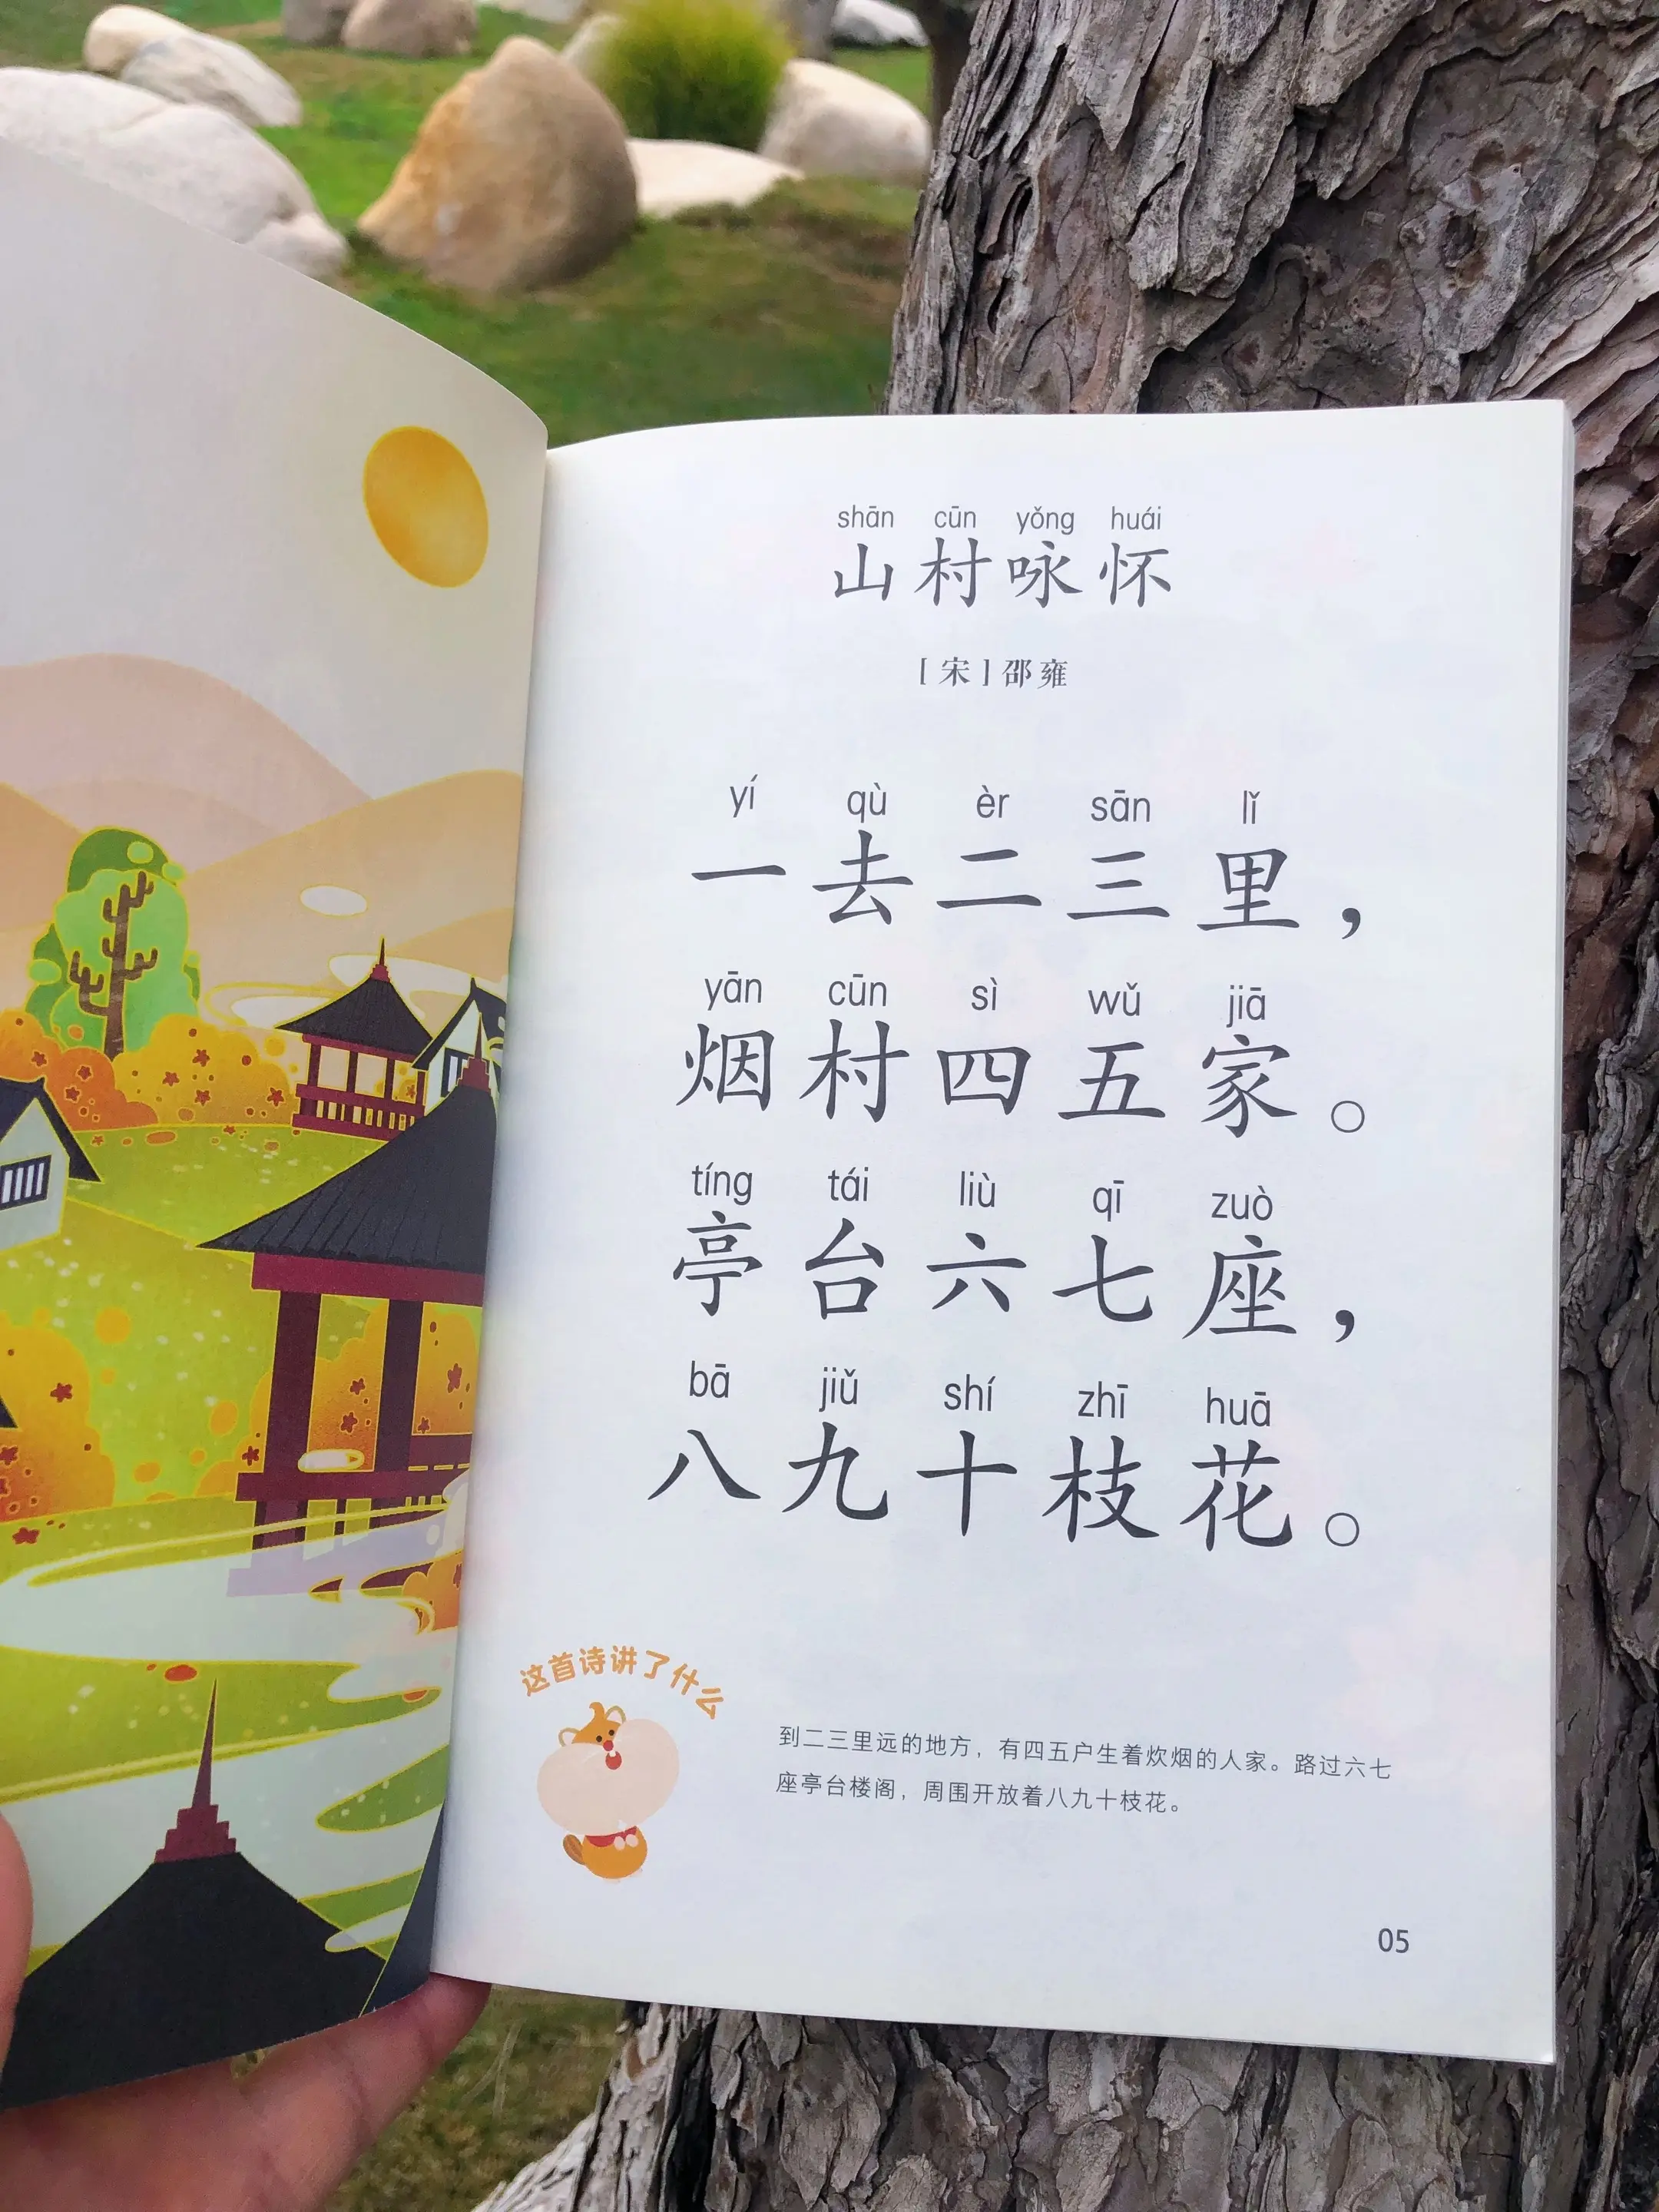 shān cūn yǒng huái
山村咏怀
[宋]邵雍
yí qù èr sān lǐ
一去二三里，
yān cūn sì wǔ jiā
烟村四五家。
tíng tái liù qī zuò
亭台六七座，
bā jiǔ shí zhī huā
八九十枝花。
这首诗讲了什么
到二三里远的地方，有四五户生着炊烟的人家。路过六七
座亭台楼阁，周围开放着八九十枝花。
05